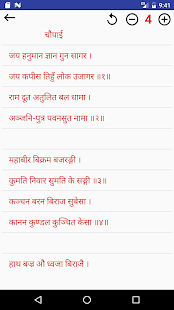 9:41
4
चौपाई
जय हनुमान ज्ञान गुन सागर ।
जय कपीस तिहुँ लोक उजागर ॥१॥
राम दूत अतुलित बल धामा ।
अञ्जनि-पुत्र पवनसुत नामा ॥२॥
महाबीर बिक्रम बजरङ्गी ।
कुमति निवार सुमति के सङ्गी ॥३॥
कञ्चन बरन बिराज सुबेसा ।
कानन कुण्डल कुञ्चित केसा ॥४॥
हाथ बज्र औ ध्वजा बिराजै ।